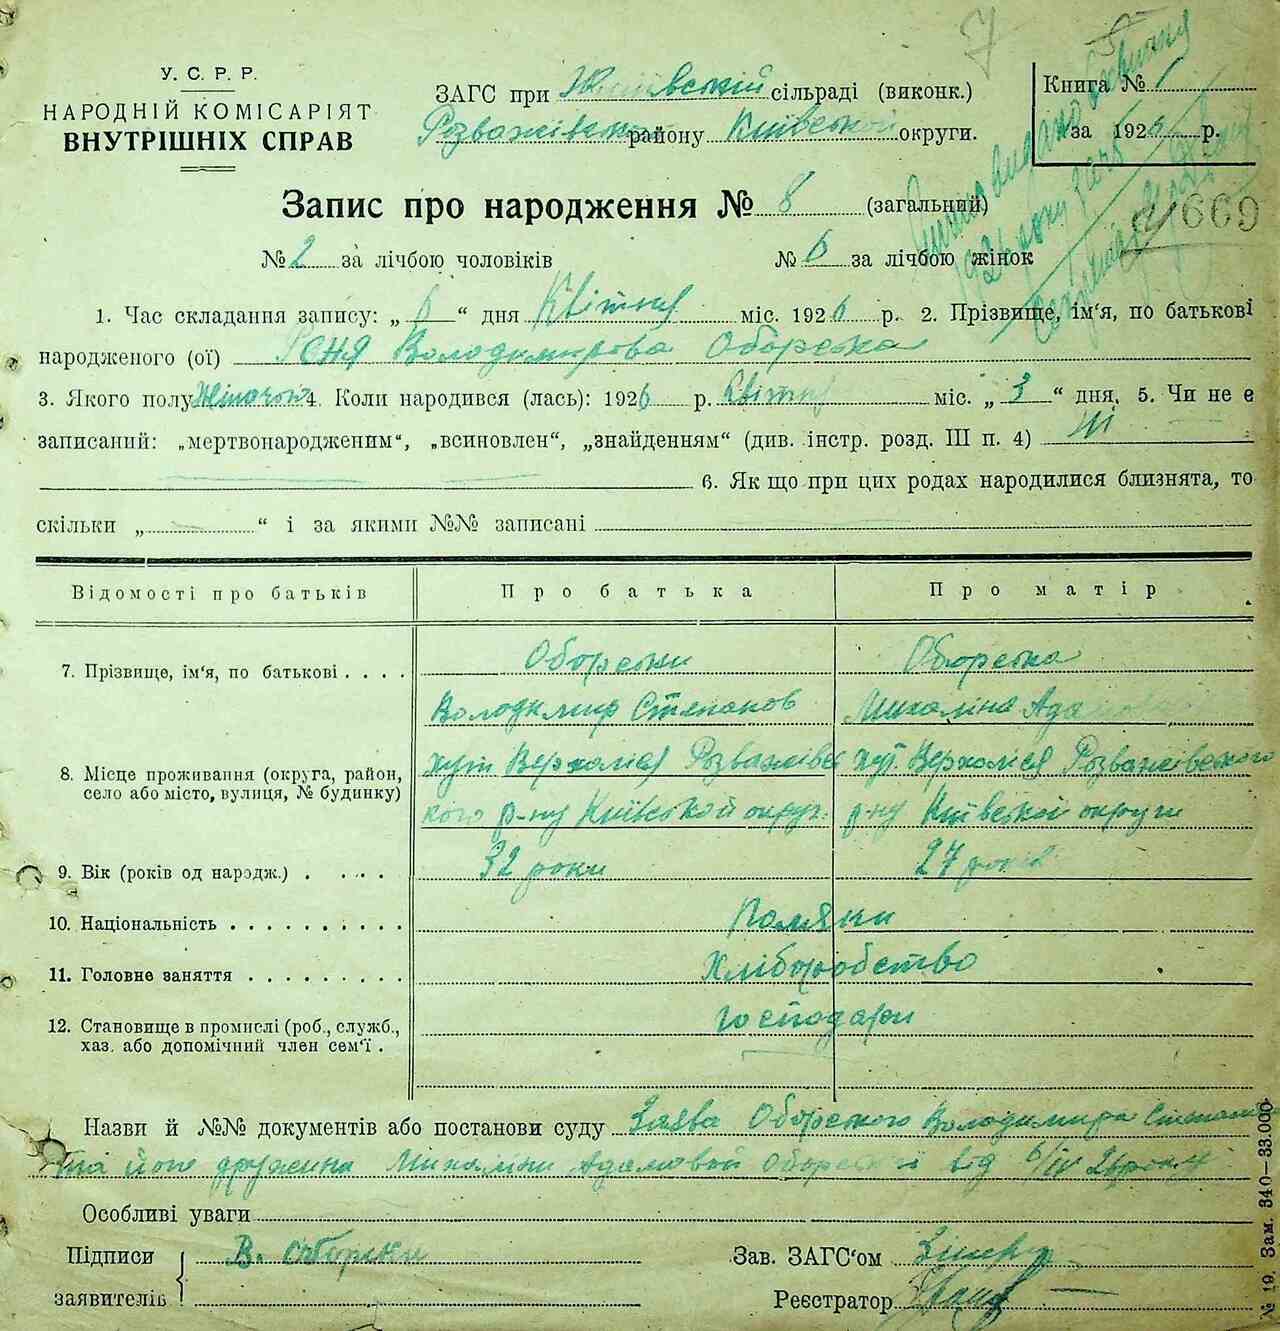 У. С. Р. Р.
НАРОДНІЙ КОМІСАРІЯТ
ВНУТРІШНІХ СПРАВ
ЗАГС при сільраді (виконк.)
Розважівськ району Київської округи.
Книга № 1
за 1926 р.
7
669
Запис про народження № 8 (загальний)
№ 2 за лічбою чоловіків № 6 за лічбою жінок
1. Час складання запису: „ 6 “ дня Квітня міс. 1926 р. 2. Прізвище, ім'я, по батькові
народженого (ої) Володимирова Оборська
3. Якого полу Жіночої 4. Коли народився (лась): 1926 р. Квітня міс. „ 3 “ дня, 5. Чи не є
записаний: „мертвонародженим“, „всиновлен“, „знайденням“ (див. інстр. розд. III п. 4) Ні
6. Як що при цих родах народилися близнята, то
скільки „ “ і за якими №№ записані
Відомості про батьків Про батька Про матір
7. Прізвище, ім'я, по батькові . . . . Оборськи Оборська
Володимир Степанов Михаліна
8. Місце проживання (округа, район, село або місто, вулиця, № будинку) хут Верхолісся Розважівсь хут. Верхолісся Розважівського
кого р-ну Київської округ. р-ну Київської округи
9. Вік (років од народж.) . . . . 32 роки 27 років
10. Національність . . . . . . . . . . Поляки
11. Головне заняття . . . . . . . . . Хліборобство
12. Становище в промислі (роб., служб., господари
хаз. або допомічний член сем'ї .
Назви й №№ документів або постанови суду Заява Оборського Володимира
та його дружина Михаліни Адамовой від 6/IV 26 року
Особливі уваги
Підписи В. Оборски Зав. ЗАГС'ом
заявителів Реєстратор
№ 19. Зам. 340—33.000